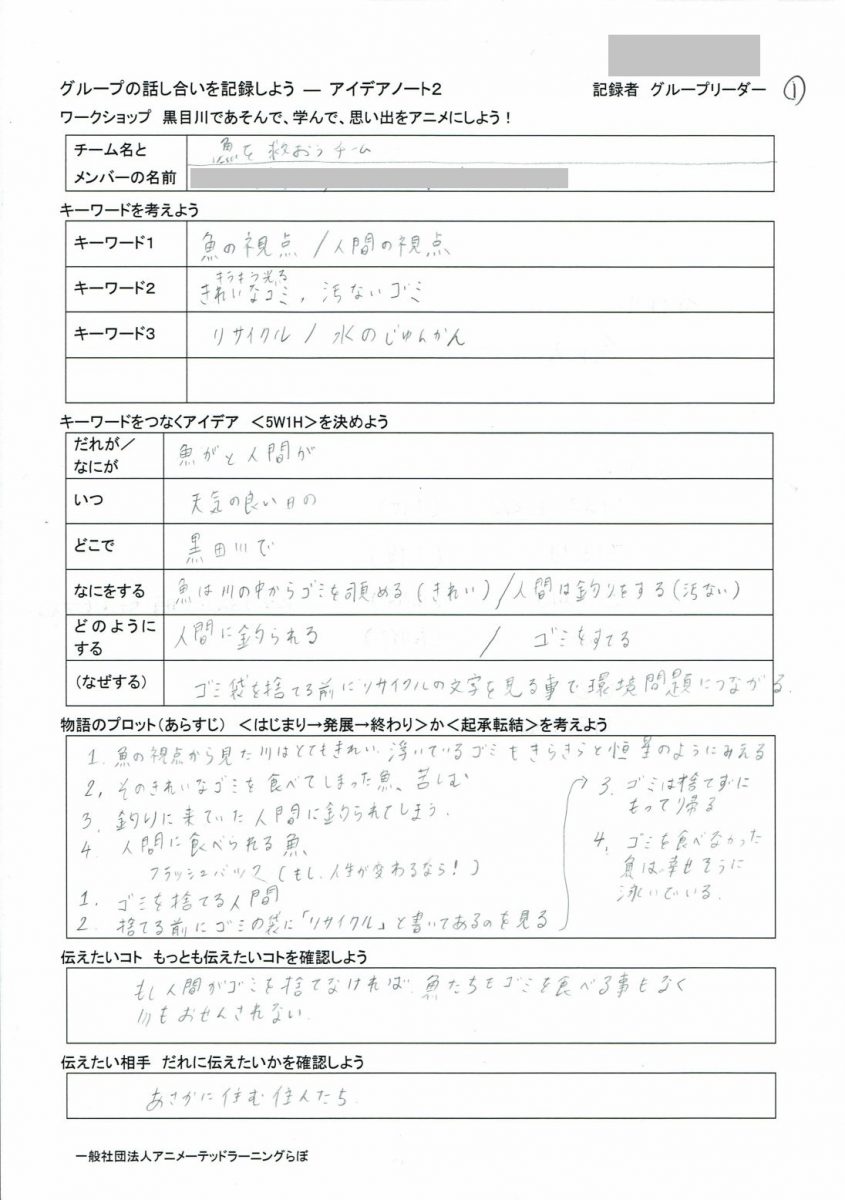 グループの話し合いを記録しよう ― アイデアノート2
記録者 グループリーダー
①
ワークショップ 黒目川であそんで、学んで、思い出をアニメにしよう！
チーム名と
メンバーの名前
魚を救おうチーム
キーワードを考えよう
キーワード1
魚の視点 / 人間の視点
キーワード2
キラキラ光る
きれいなゴミ, 汚ないゴミ
キーワード3
リサイクル / 水のじゅんかん
キーワードをつなぐアイデア ＜5W1H＞を決めよう
だれが／
なにが
魚がと人間が
いつ
天気の良い日の
どこで
黒田川で
なにをする
魚は川の中からゴミを眺める (きれい) / 人間は釣りをする (汚ない)
どのように
する
人間に釣られる / ゴミをすてる
(なぜする)
ゴミ袋を捨てる前にリサイクルの文字を見る事で環境問題につながる.
物語のプロット(あらすじ) ＜はじまり→発展→終わり＞か＜起承転結＞を考えよう
1. 魚の視点から見た川はとてもきれい. 浮いているゴミもきらきらと恒星のようにみえる
2, そのきれいなゴミを食べてしまった魚、苦しむ
3. 釣りに来ていた人間に釣られてしまう.
4. 人間に食べられる魚、
フラッシュバック (もし、人生が変わるなら!)
1. ゴミを捨てる人間
2. 捨てる前にゴミの袋に「リサイクル」と書いてあるのを見る
3. ゴミは捨てずに
もって帰る
4, ゴミを食べなかった
魚は幸せそうに
泳いでいる.
伝えたいコト もっとも伝えたいコトを確認しよう
もし人間がゴミを捨てなければ、魚たちもゴミを食べる事もなく
川もおせんされない.
伝えたい相手 だれに伝えたいかを確認しよう
あさかに住む住人たち
一般社団法人アニメーテッドラーニングらぼ